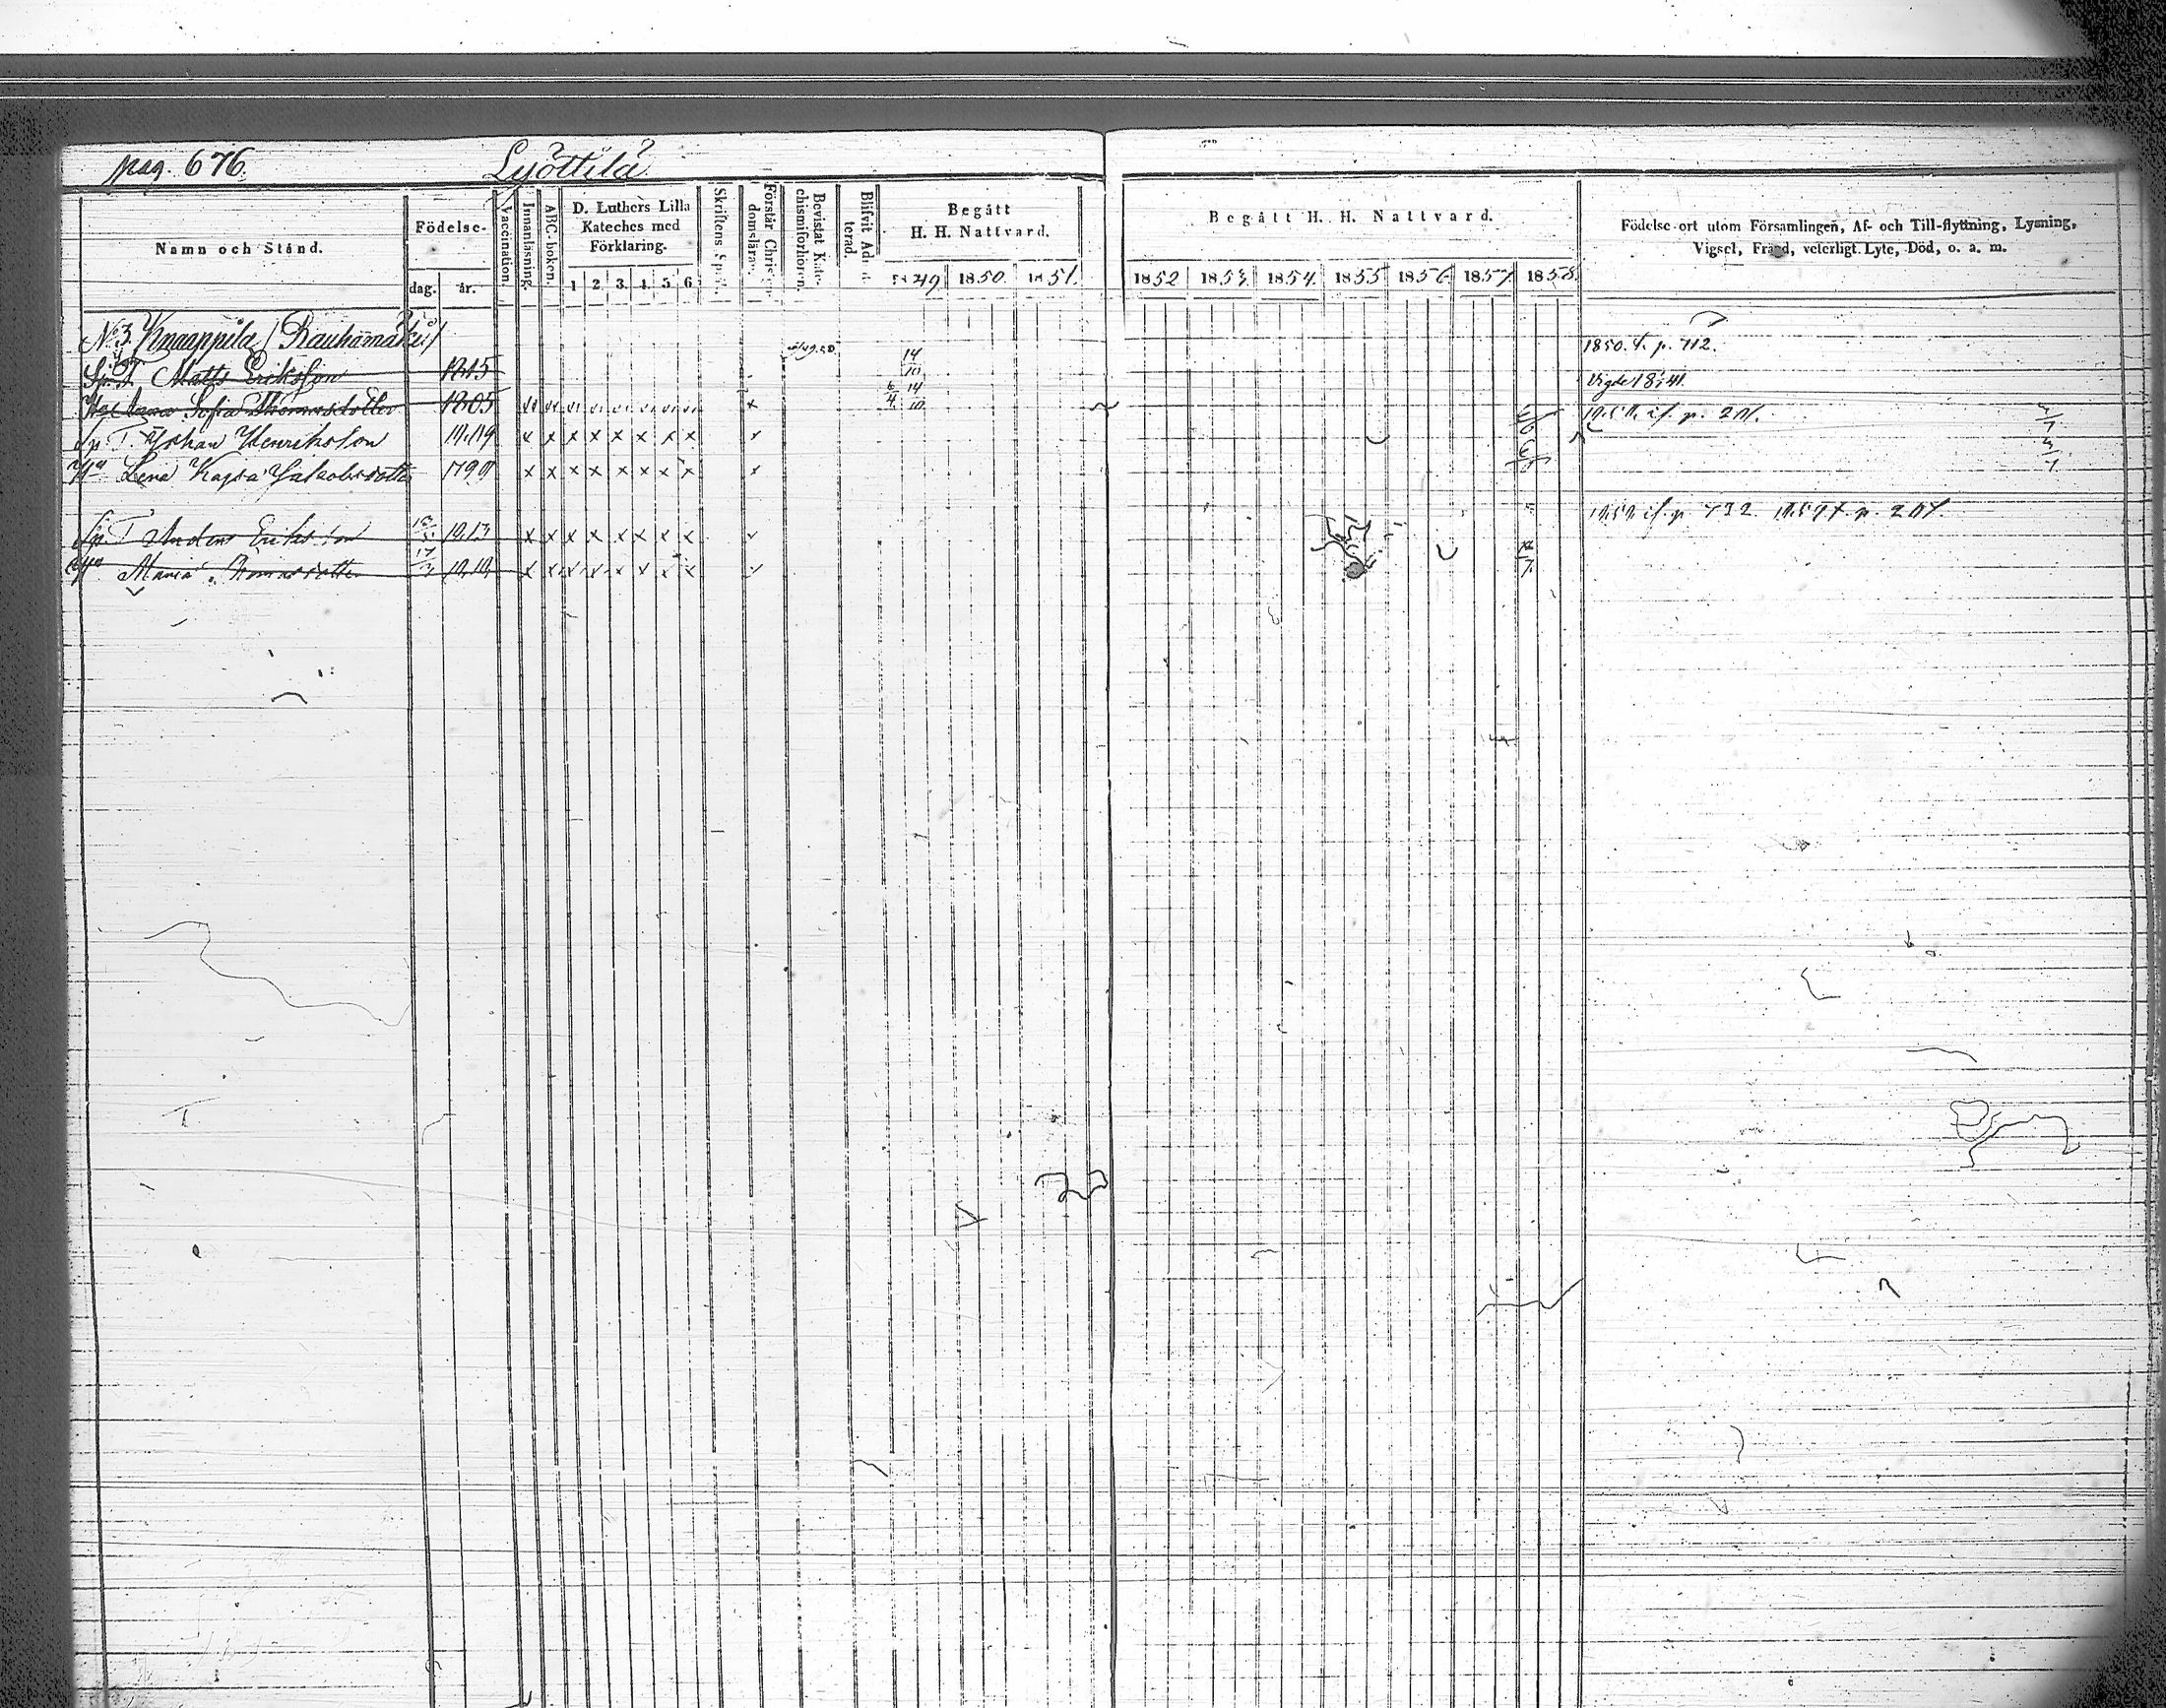 pag. 676. Lyöttilä
Namn och Stånd.
Födelse-
dag. år.
Vaccination.
Innanläsning.
ABC-boken.
D. Luthers Lilla
Kateches med
Förklaring.
1 2. 3. 4. 5. 6.
Skriftens Sp
Förstår Chris
domslaran.
Bevistat Kate-
chismiförhören.
Blifvit Ad
terad.
Begått
H. H. Nattvard.
1849 1850. 1851.
Begått H. H. Nattvard.
1852 1853. 1854. 1855 1856. 1857. 1858.
Födelse-ort utom Församlingen, Af- och Till-flyttning, Lysning,
Vigsel, Frejd, veterligt Lyte, Död, o. a. m.
No 3. Knaappila / Rauhamäki /
1850. t. p. 712.
Sp. T. Matts Eriksson 1815 14/10 Vigde 1841.
Hu Anna Sofia Thomasdotter 1805 6/4 14/10
Sp. T. Johan Henriksson 1819 x x x x x x x x x
Hu Lena Kajsa Jakobsdotter 1799 x x x x x x x x x
Sp. T Anders Eriksson 1813 x x x x x x x x
Hu Maria Thomasdotter 17 x x x x x x x x